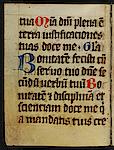 tua dñe plena ē
terra iustificationes
tuas doce me.
Bonitatē fecisti cū
seruo tuo dñe se
cūdū uerbū tuū
Bonitatē & disciplinā et
scientiam doce me q
a mandatis tuis cre